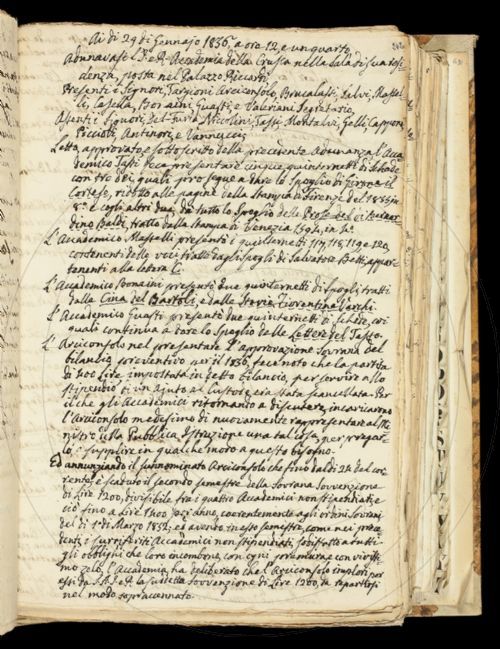 Ai dì 29 di Gennajo 1856, a ore 12, e un quarto
Adunavasi l'I. e R. Accademia della Crusca nella sala di sua resi-
denza, posta nel Palazzo Riccardi.
Presenti i Signori, Targioni Arciconsolo, Brucalassi, Salvi, Massel-
li, Casella, Bonaini, Guasti, e Valeriani Segretario.
Assenti i Signori Del Furia, Niccolini, Tassi, Montalvi, Gelli, Capponi,
Piccioli, Antinori, e Vannucci.
Letto, approvato e sottoscritto della precedente Adunanza l'Acca-
demico Tassi feca presentare cinque quinternetti di Schede
con tre dei quali prosegue a dare lo Spoglio di Girone il
Cortese, ridotto alle pagine della stampa di Firenze del 1855 in
8.º e cogli altri due, dà tutto lo Spoglio delle Prose del Bernar-
dino Baldi, tratto dalla stampa di Venezia 1590, in 4.º
L'Accademico Masselli presentò i quinternetti 117, 118, 119 e 120,
contenenti delle voci tratte dagli spogli di Salvatore Betti appar-
tenenti alla lettera C.
L'Accademico Bonaini presentò due quinternetti di Spogli tratti
dalla Cina del Bartoli, e dalla Storia Fiorentina Varchi.
L'Accademico Guasti presentò due quinternetti di Schede, coi
quali continua a dare lo Spoglio delle Lettere del Tasso.
L'Arciconsolo nel presentare l'approvazione Sovrana del
bilancio preventivo per il 1856, fece noto che la partita
di 400 Lire impostata in detto bilancio, per servire allo
stipendio di un ajuto al Custode era stata scancellata. Per
il che gli Accademici ritornando a discutere, incaricarono
l'Arciconsolo medesimo di nuovamente rappresentare al Mi-
nistro della Pubblica Istruzione una tal cosa, per pregar-
lo a supplire in qualche modo a questo bisogno.
Ed annunziando il sunnominato Arciconsolo che fino dal dì 24 del cor-
rente, è scaduto il secondo semestre della Sovrana Sovvenzione
di Lire 1200, divisibile fra i quattro Accademici non stipendiati, e
ciò fino a Lire 2400 coerentemente agli ordini Sovrani
del dì 1.º di Marzo 1852, ed avendo in esso semestre, come nei prece-
denti, i surriferiti Accademici non stipendiati, sodisfatto a tutti
gli obblighi che loro incombono, con ogni premura e con vivissi-
mo zelo, l'Accademia ha deliberato che l'Arciconsolo implori per
essi da S. A. I. e R. la suddetta Sovvenzione di Lire 1200, da repartirsi
nel modo sopraccennato.